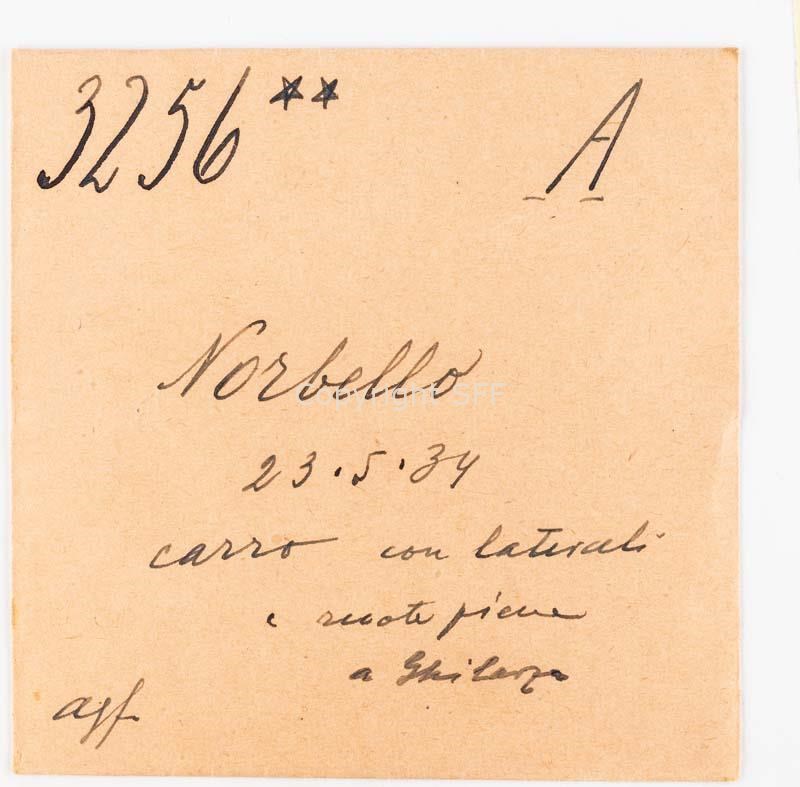 3256 ** A
Norbello
23.5.34
carro con laterali
e ruote piene
a Ghilarza
agf.
Copyright SFF